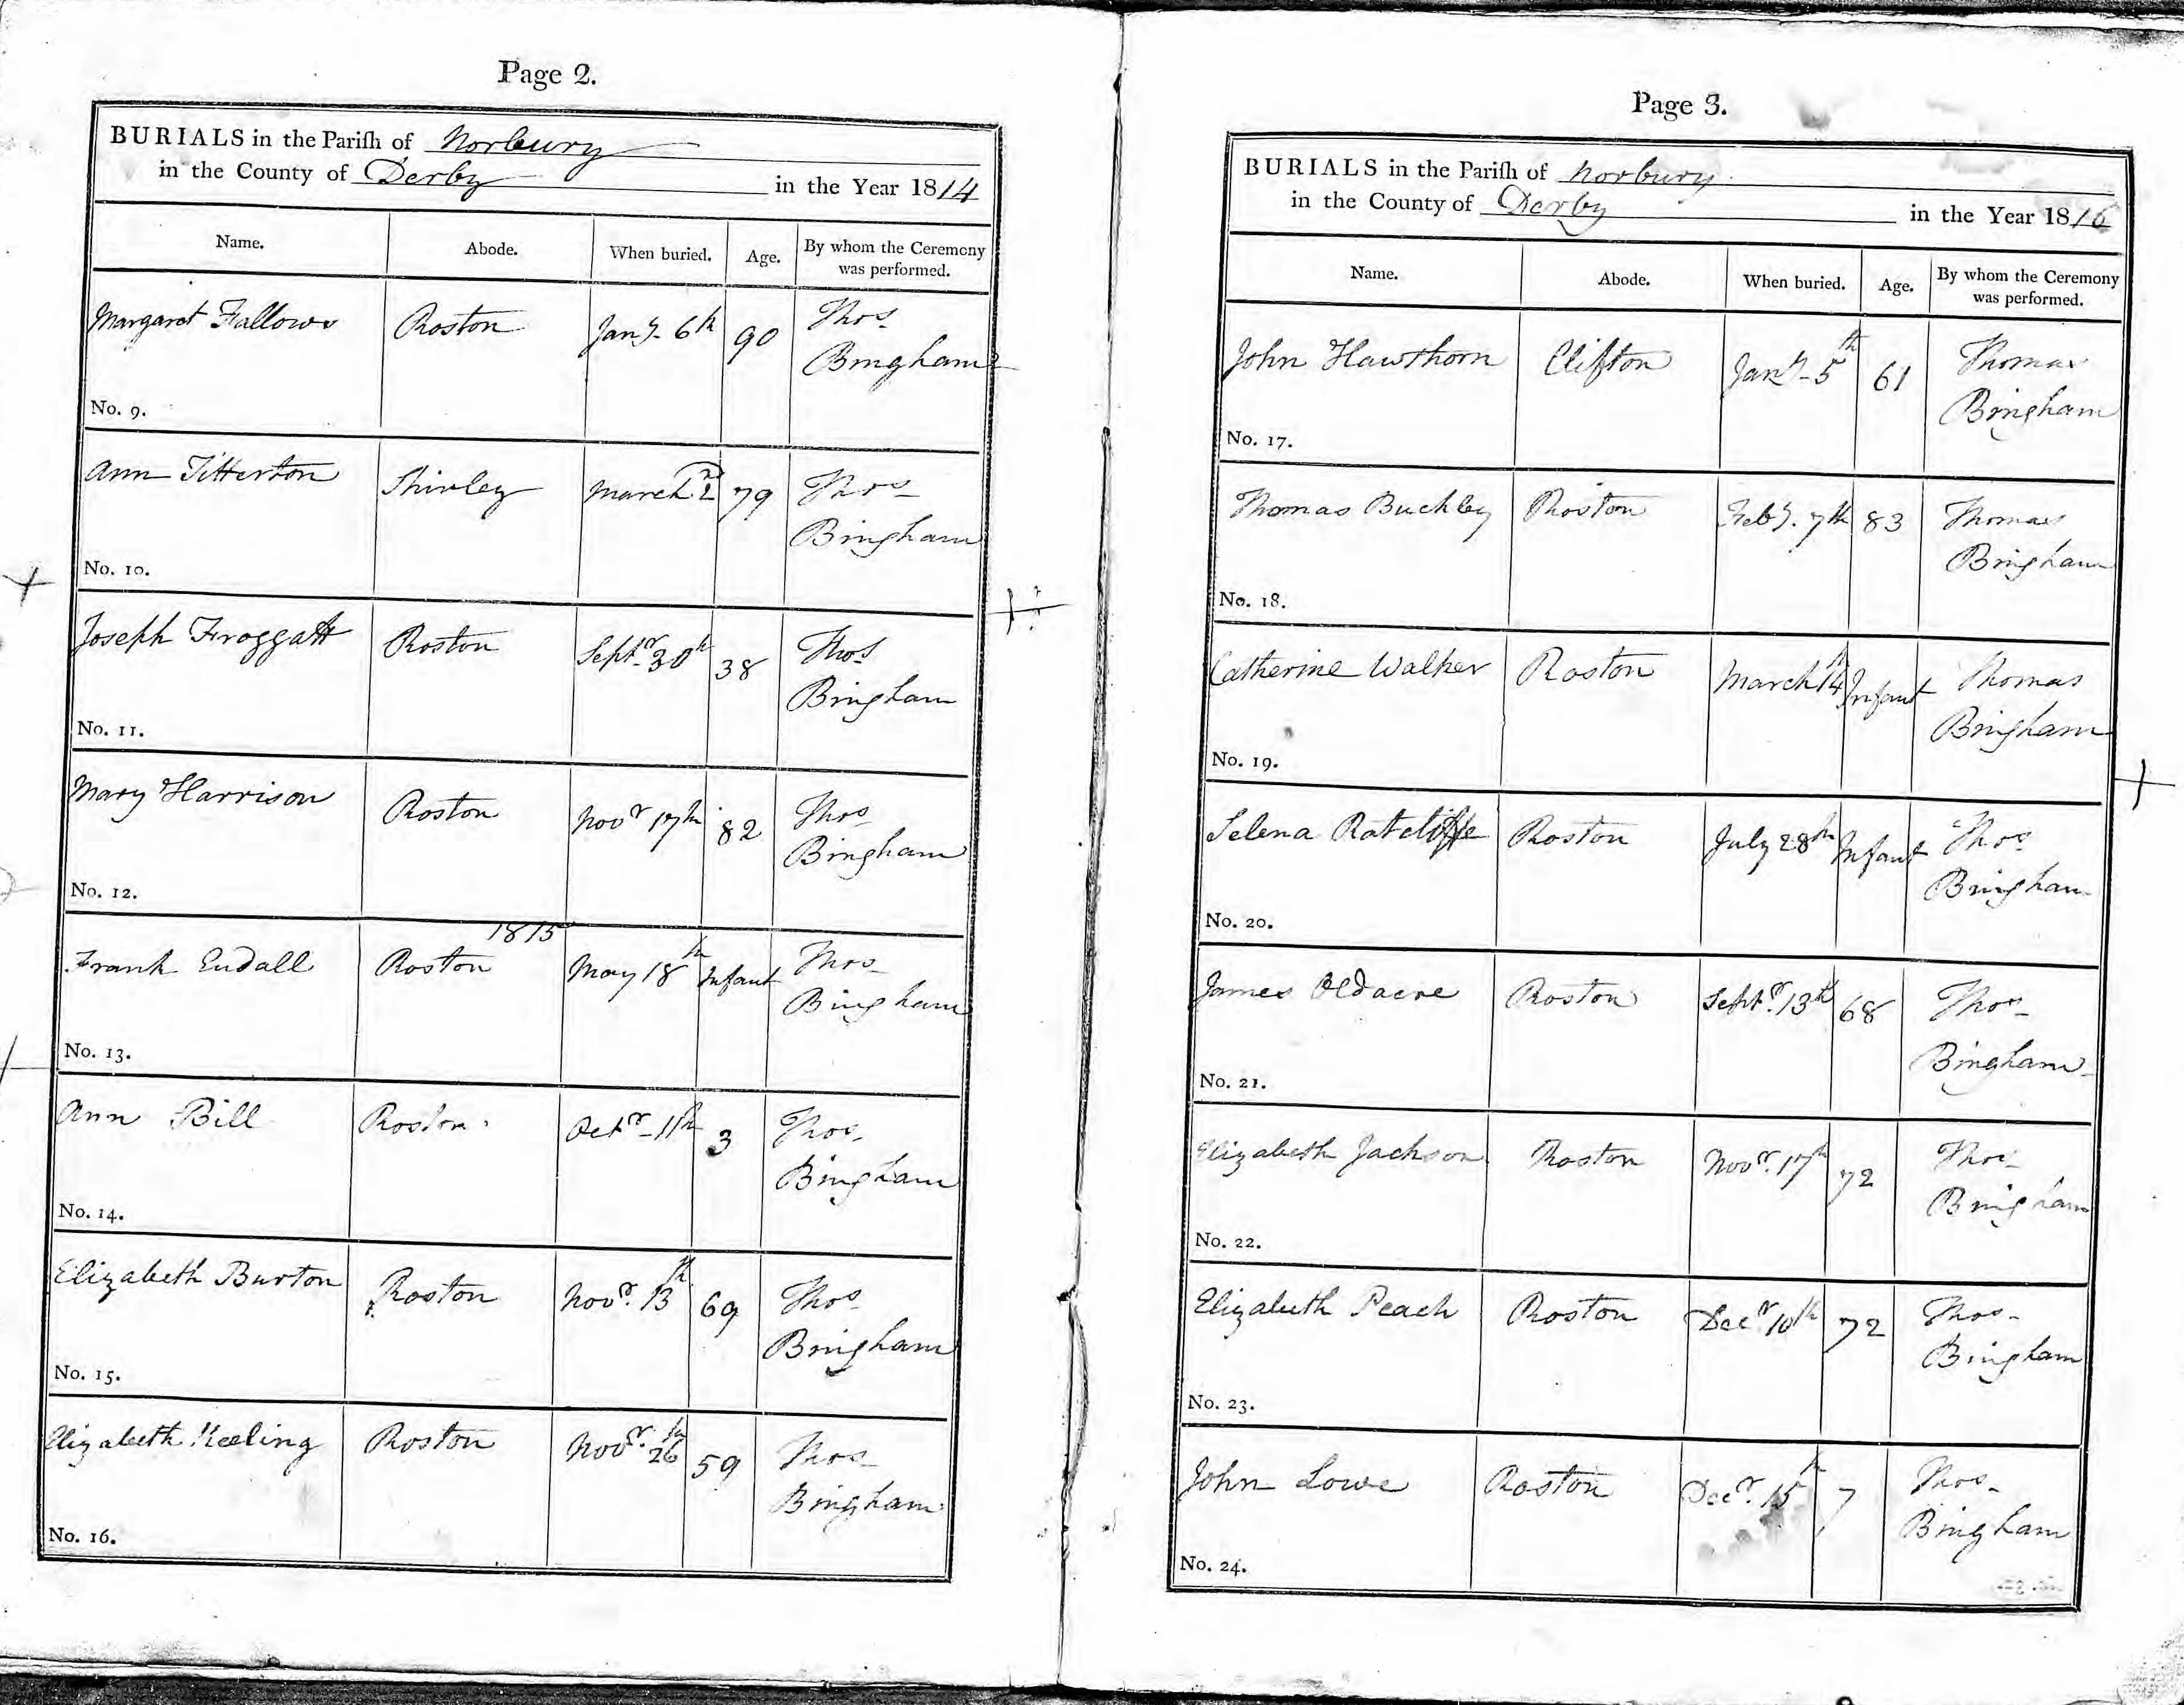 Page 2.
BURIALS in the Parish of Norbury
in the County of Derby in the Year 1814
Name. Abode. When buried. Age. By whom the Ceremony was performed.
Margaret Fallows Roston Jany. 6th 90 Thos. Bingham
No. 9.
Ann Titterton Shirley March 2nd 79 Thos. Bingham
No. 10.
Joseph Froggatt Roston Septr. 30th 38 Thos. Bingham
No. 11.
Mary Harrison Roston Novr. 17th 82 Thos. Bingham
No. 12.
1815
Frank Eudall Roston May 18th Infant Thos. Bingham
No. 13.
Ann Bill Roston Octr. 11th 3 Thos. Bingham
No. 14.
Elizabeth Burton Roston Novr. 13th 69 Thos. Bingham
No. 15.
Elizabeth Keeling Roston Novr. 26th 59 Thos. Bingham
No. 16.
Page 3.
BURIALS in the Parish of Norbury
in the County of Derby in the Year 1816
Name. Abode. When buried. Age. By whom the Ceremony was performed.
John Hawthorn Clifton Jany. 5th 61 Thomas Bingham
No. 17.
Thomas Buckley Roston Feby. 7th 83 Thomas Bingham
No. 18.
Catherine Walker Roston March 14th Infant Thomas Bingham
No. 19.
Selena Ratcliffe Roston July 28th Infant Thos. Bingham
No. 20.
James Oldacre Roston Septr. 13th 68 Thos. Bingham
No. 21.
Elizabeth Jackson Roston Novr. 17th 72 Thos. Bingham
No. 22.
Elizabeth Peach Roston Decr. 10th 72 Thos. Bingham
No. 23.
John Lowe Roston Decr. 15th 7 Thos. Bingham
No. 24.